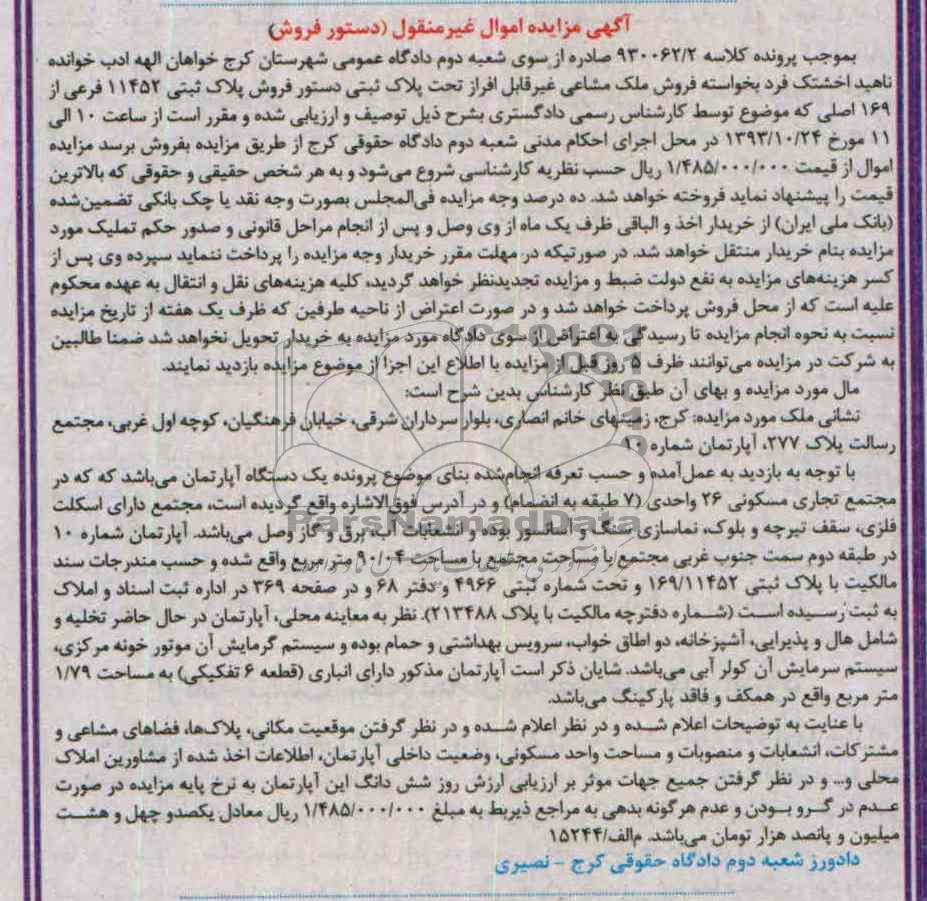 آگهی مزایده اموال غیرمنقول (دستور فروش)
بموجب پرونده کلاسه ۹۳۰۰۶۲/۲ صادره از سوی شعبه دوم دادگاه عمومی شهرستان کرج خواهان الهه ادب خوانده
ناهید اخشتک فرد بخواسته فروش ملک مشاعی غیرقابل افراز تحت پلاک ثبتی دستور فروش پلاک ثبتی ۱۱۴۵۲ فرعی از
۱۶۹ اصلی که موضوع توسط کارشناس رسمی دادگستری بشرح ذیل توصیف و ارزیابی شده و مقرر است از ساعت ۱۰ الی
۱۱ مورخ ۱۳۹۳/۱۰/۲۴ در محل اجرای احکام مدنی شعبه دوم دادگاه حقوقی کرج از طریق مزایده بفروش برسد مزایده
اموال از قیمت ۱/۴۸۵/۰۰۰/۰۰۰ ریال حسب نظریه کارشناسی شروع می‌شود و به هر شخص حقیقی و حقوقی که بالاترین
قیمت را پیشنهاد نماید فروخته خواهد شد. ده درصد وجه مزایده فی‌المجلس بصورت وجه نقد یا چک بانکی تضمین‌شده
(بانک ملی ایران) از خریدار اخذ و الباقی ظرف یک ماه از وی وصل و پس از انجام مراحل قانونی و صدور حکم تملیک مورد
مزایده بنام خریدار منتقل خواهد شد. در صورتیکه در مهلت مقرر خریدار وجه مزایده را پرداخت ننماید سپرده وی پس از
کسر هزینه‌های مزایده به نفع دولت ضبط و مزایده تجدیدنظر خواهد گردید، کلیه هزینه‌های نقل و انتقال به عهده محکوم
علیه است که از محل فروش پرداخت خواهد شد و در صورت اعتراض از ناحیه طرفین که ظرف یک هفته از تاریخ مزایده
نسبت به نحوه انجام مزایده تا رسیدگی به اعتراض از سوی دادگاه مورد مزایده به خریدار تحویل نخواهد شد ضمنا طالبین
به شرکت در مزایده می‌توانند ظرف ۵ روز قبل از مزایده با اطلاع این اجرا از موضوع مزایده بازدید نمایند.
مال مورد مزایده و بهای آن طبق نظر کارشناس بدین شرح است:
نشانی ملک مورد مزایده: کرج، زمینهای خانم انصاری، بلوار سرداران شرقی، خیابان فرهنگیان، کوچه اول غربی، مجتمع
رسالت پلاک ۲۷۷، آپارتمان شماره ۱۰
با توجه به بازدید به عمل‌آمده و حسب تعرفه انجام‌شده بنای موضوع پرونده یک دستگاه آپارتمان می‌باشد که که در
مجتمع تجاری مسکونی ۲۶ واحدی (۷ طبقه به انضمام) و در آدرس فوق‌الاشاره واقع گردیده است، مجتمع دارای اسکلت
فلزی، سقف تیرچه و بلوک، نماسازی سنگ و آسانسور بوده و انشعابات آب، برق و گاز وصل می‌باشد. آپارتمان شماره ۱۰
در طبقه دوم سمت جنوب غربی مجتمع با مساحت مجتمع با مساحت ۹۰/۰۴ متر مربع واقع شده و حسب مندرجات سند
مالکیت با پلاک ثبتی ۱۶۹/۱۱۴۵۲ و تحت شماره ثبتی ۴۹۶۶ و دفتر ۶۸ و در صفحه ۳۶۹ در اداره ثبت اسناد و املاک
به ثبت رسیده است (شماره دفترچه مالکیت با پلاک ۲۱۳۴۸۸). نظر به معاینه محلی، آپارتمان در حال حاضر تخلیه و
شامل هال و پذیرایی، آشپزخانه، دو اطاق خواب، سرویس بهداشتی و حمام بوده و سیستم گرمایش آن موتور خونه مرکزی،
سیستم سرمایش آن کولر آبی می‌باشد. شایان ذکر است آپارتمان مذکور دارای انباری (قطعه ۶ تفکیکی) به مساحت ۱/۷۹
متر مربع واقع در همکف و فاقد پارکینگ می‌باشد.
با عنایت به توضیحات اعلام شده و در نظر اعلام شده و در نظر گرفتن موقعیت مکانی، پلاک‌ها، فضاهای مشاعی و
مشترکات، انشعابات و منصوبات و مساحت واحد مسکونی، وضعیت داخلی آپارتمان، اطلاعات اخذ شده از مشاورین املاک
محلی و... و در نظر گرفتن جمیع جهات موثر بر ارزیابی ارزش روز شش دانگ این آپارتمان به نرخ پایه مزایده در صورت
عدم در گرو بودن و عدم هرگونه بدهی به مراجع ذیربط به مبلغ ۱/۴۸۵/۰۰۰/۰۰۰ ریال معادل یکصدو چهل و هشت
میلیون و پانصد هزار تومان می‌باشد. م‌الف/۱۵۲۴۴
دادورز شعبه دوم دادگاه حقوقی کرج - نصیری
ParsNamadData